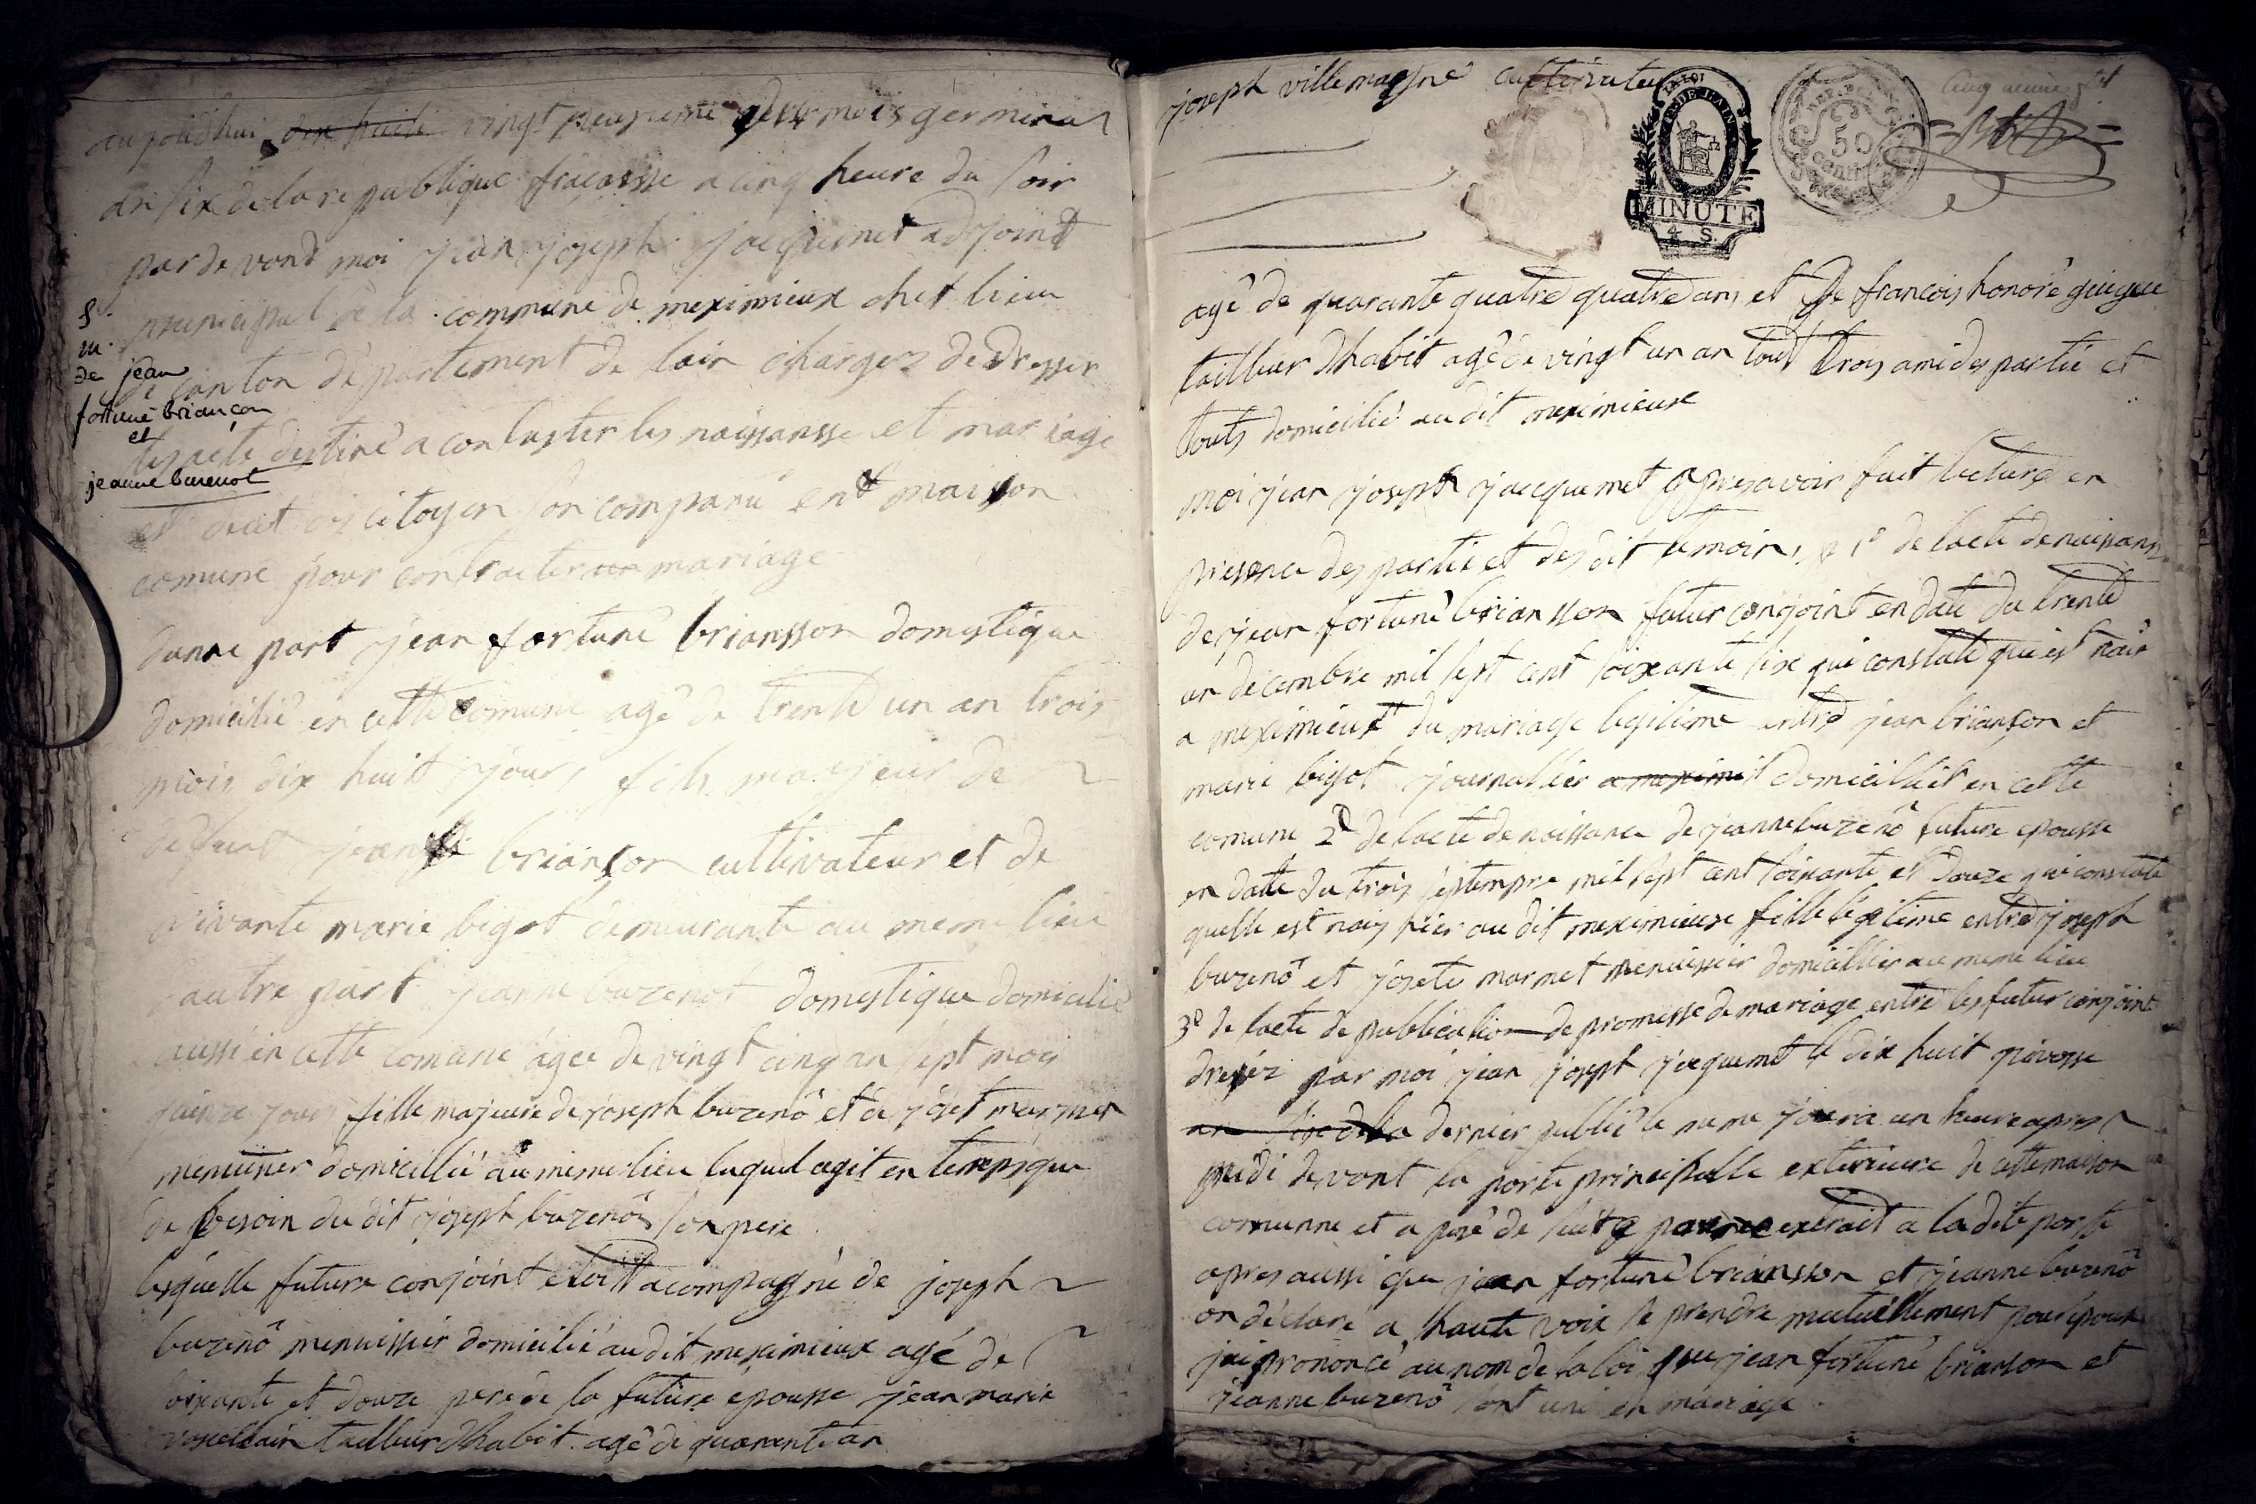 aujourdhui dix huit vingt neuvieme germinal
an six de la republique fracaisse a cinq heure du soir
par devont moi jean joseph jacquemet adjoint
municipal de la commune de meximieux chef lieu
de canton departement de lain chargez de dresser
les acte destiné a contaster les naissansse et mariage
citoyen on comparu en maison
comune pour contracter mariage
S.
m.
de jean
fortuné briançon
et
jeanne burenot
dunne part jean fortuné briansson domestique
domicilié en cette comune agé de trente un an trois
mois dix huit jours fils majeur de
defunt jean briançon cultivateur et de
vivante marie bigot demeurante au meme lieu
autre part jeanne buzenot domestique domicilié
aussi en cette comune agee de vingt cinq an sept mois
quinze jour fille majeure de joseph buzenô et de josete marmet
menuisier domicillié au meme lieu lequel agit en temps que
de besoin du dit joseph buzenô son pere
lesquelle future conjoint etoitt acompagné de joseph
buzenô menuissier domicilié au dit meximieux agé de
soixante et douze pere de la future épousse jean marie
tailleur dhabit agé de quarante an
joseph villemagne cultivateur
LA LOI
REP. FRA.
50
centi
MINUTE
4 S.
agé de quarante quatre quatre ans et de francois honoré guigue
tailleur dhabit agé de vingt un an tout trois ami des partie et
touts domicilié au dit meximieux
moi jean joseph jacquemet apres avoir fait lecture en
presence des partie et des dit temoins 1º de lacte de naissans
de jean fortuné briansson futur conjoint en date du trente
un décembre mil sept cent soixante six qui constate qui est nais
a meximieux du mariage legitime entre jean briançon et
marie bigot journallier a meximi domicilliet en cette
comune 2º de lacte de naissance de jeanne buzenô future epousse
en datte du trois septempre mil sept cent soixante et douze qui constate
quelle est nais hier au dit meximieux fille légitime entre joseph
buzenô et josete marmet menuissier domicillier au meme lieu
3º de lacte de publication de promesse de mariage entre les futur conjoint
dressez par moi jean joseph jacquemet le dix huit pivosse
an six de la dernier publié le meme jour a un heure apres
midi devont la porte principalle exterieure de cette maison
comunne et a posé de suite extrait a la dite porte
apres aussi que jean fortuné briansson et jeanne buzenô
on déclaré a haute voix se prendre mutuellement pour époux
jai prononcé au nom de la loi que jean fortuné brianson et
jeanne buzenô sont uni en mariage